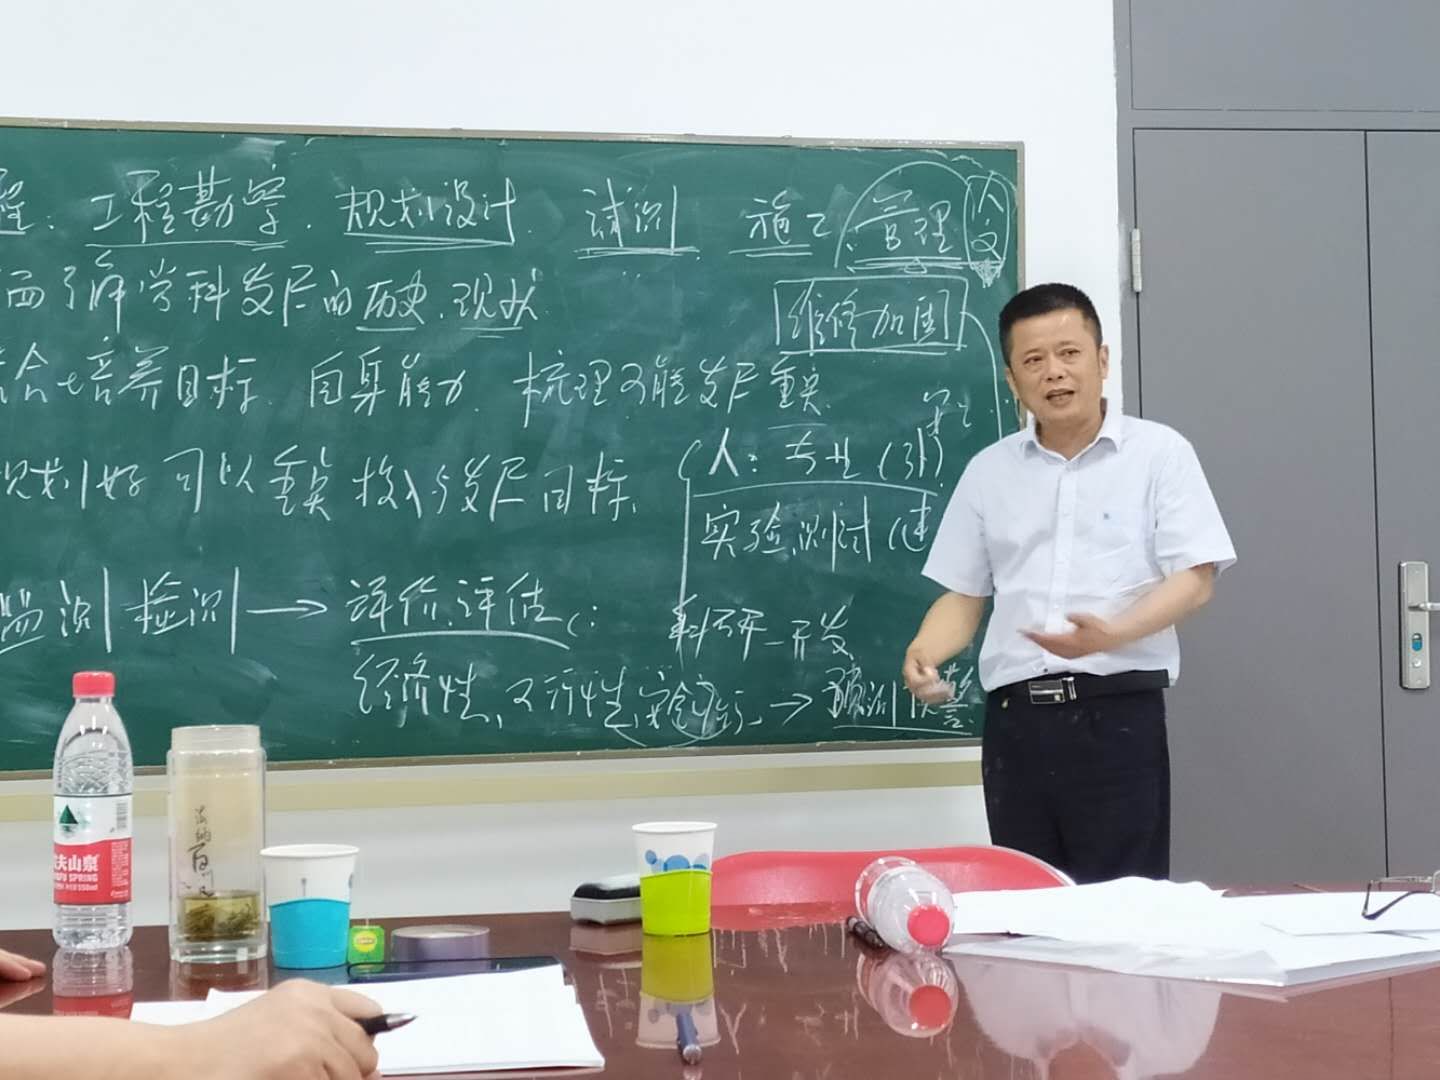 程、工程勘察、规划设计、试测、施工、管理 人文
面了解学科发展的历史、现状
维修加固
结合培养目标、自身能力、梳理可能发展重点
规划好可以重点投入与发展目标、
人:专业(引
实验、测试(建
监测 检测 → 评价、评估
科研—开发
经济性、可行性、 → 预测
农夫山泉
550ml